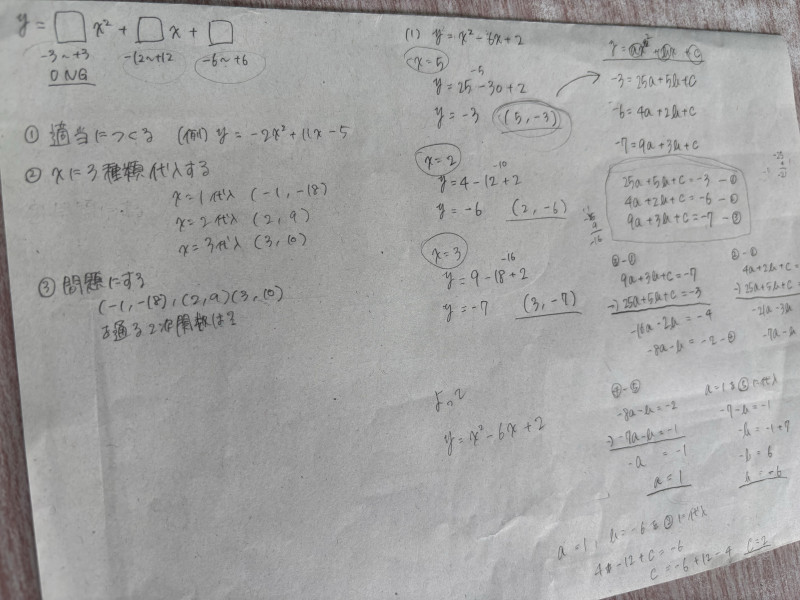 y = □ x² + □ x + □
-3~+3 -12~+12 -6~+6
0 NG
① 適当につくる (例) y = -2x² + 11x - 5
② xに3種類代入する
x = 1 代入 (-1, -18)
x = 2 代入 (2, 9)
x = 3 代入 (3, 10)
③ 問題にする
(-1, -18), (2, 9) (3, 10)
を通る2次関数は?
(1) y = x² - 6x + 2
x = 5
-5
y = 25 - 30 + 2
y = -3 (5, -3)
x = 2
-10
y = 4 - 12 + 2
y = -6 (2, -6)
x = 3
-16
y = 9 - 18 + 2
y = -7 (3, -7)
よって
y = x² - 6x + 2
y = ax² + bx + c
-3 = 25a + 5b + c
-6 = 4a + 2b + c
-7 = 9a + 3b + c
25a + 5b + c = -3 - ①
4a + 2b + c = -6 - ②
9a + 3b + c = -7 - ③
9a + 3b + c = -7
-) 25a + 5b + c = -3
-16a - 2b = -4
-8a - b = -2 - ④
4a + 2b + c =
-) 25a + 5b + c =
-21a - 3b
-7a - b
④ - ⑤
-8a - b = -2
-) -7a - b = -1
-a = -1
a = 1
a = 1を⑤に代入
-7 - b = -1
-b = -1 + 7
-b = 6
b = -6
a = 1, b = -6を②に代入
4 - 12 + c = -6
c = -6 + 12 - 4 c = 2